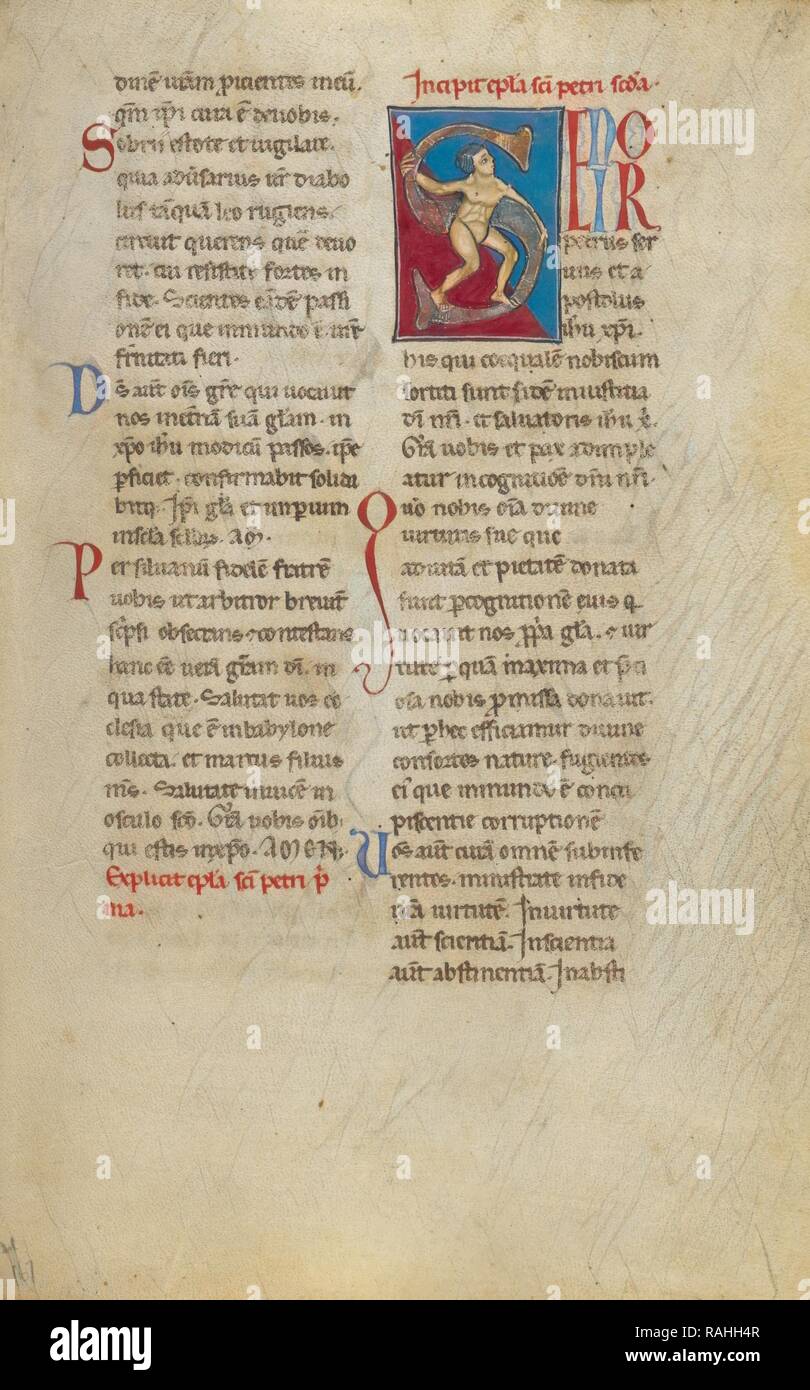 dinē urām ꝓicientes ineū.
qm̄ ip̄i cura ē deuobis.
Sobrii estote et uigilate.
quia adūsarius ur̄ diabo
lus tāquā leo rugiens.
circuit querens quē deuo
ret. cui resistite fortes in
fide. Scientes eādē passi
onē ei que inmundo ē. ur̄e
fr̄nitati fieri.
Ds̄ aut̄ oīs gr̄e qui uocauit
nos inet̄nā suā gl̄am. in
xp̄o ih̄u modicū passos. ip̄e
ꝑficiet. confirmabit solida
bitq̄. Ip̄i gl̄a et inꝑium
insc̄la sc̄lor̄. am̄.
Per siluanū fidelē fratrē
uobis ut arbitror breuit̄
sc̄psi obsecrans ⁊ contestans
hanc eē uerā gr̄am dī. in
qua state. Salutat uos ec
clesia que ē in babylone
collecta. et marcus filius
ms̄. Salutate inuicē in
osculo sc̄o. Gr̄a uobis om̄ib
qui estis inxp̄o. AMEN.
Explicit ep̄la sc̄i petri p̄
ma.
Incipit ep̄la sc̄i petri sc̄da.
SEMO
IR
petrus ser
uus et a
postolus
ih̄u xp̄i.
his qui coequalē nobiscum
sortiti sunt fidē iniustitia
dī nr̄i. et saluatoris ih̄u x̄.
Gr̄a uobis et pax adimple
atur incognitiōe dn̄i nr̄i.
Quō nobis oīa diuine
uirtutis sue que
aduitā et pietatē donata
sunt ꝑcognitionē eius q
uocauit nos ꝓpa gl̄a. ⁊ uir
tute ꝑ quā maxima et p̄ci
osa nobis ꝓmissa donauit.
ut ꝑhec efficiamur diuine
consortes nature. fugientes
ei que inmundo ē concu
piscentie corruptionē
Uos aut̄ curā omnē subinfe
rentes. ministrate infide
ur̄a uirtutē. Inuirtute
aut̄ scientiā. Inscientia
aut̄ abstinentiā. Inabsti
alamy
Image ID: RAHH4R
www.alamy.com